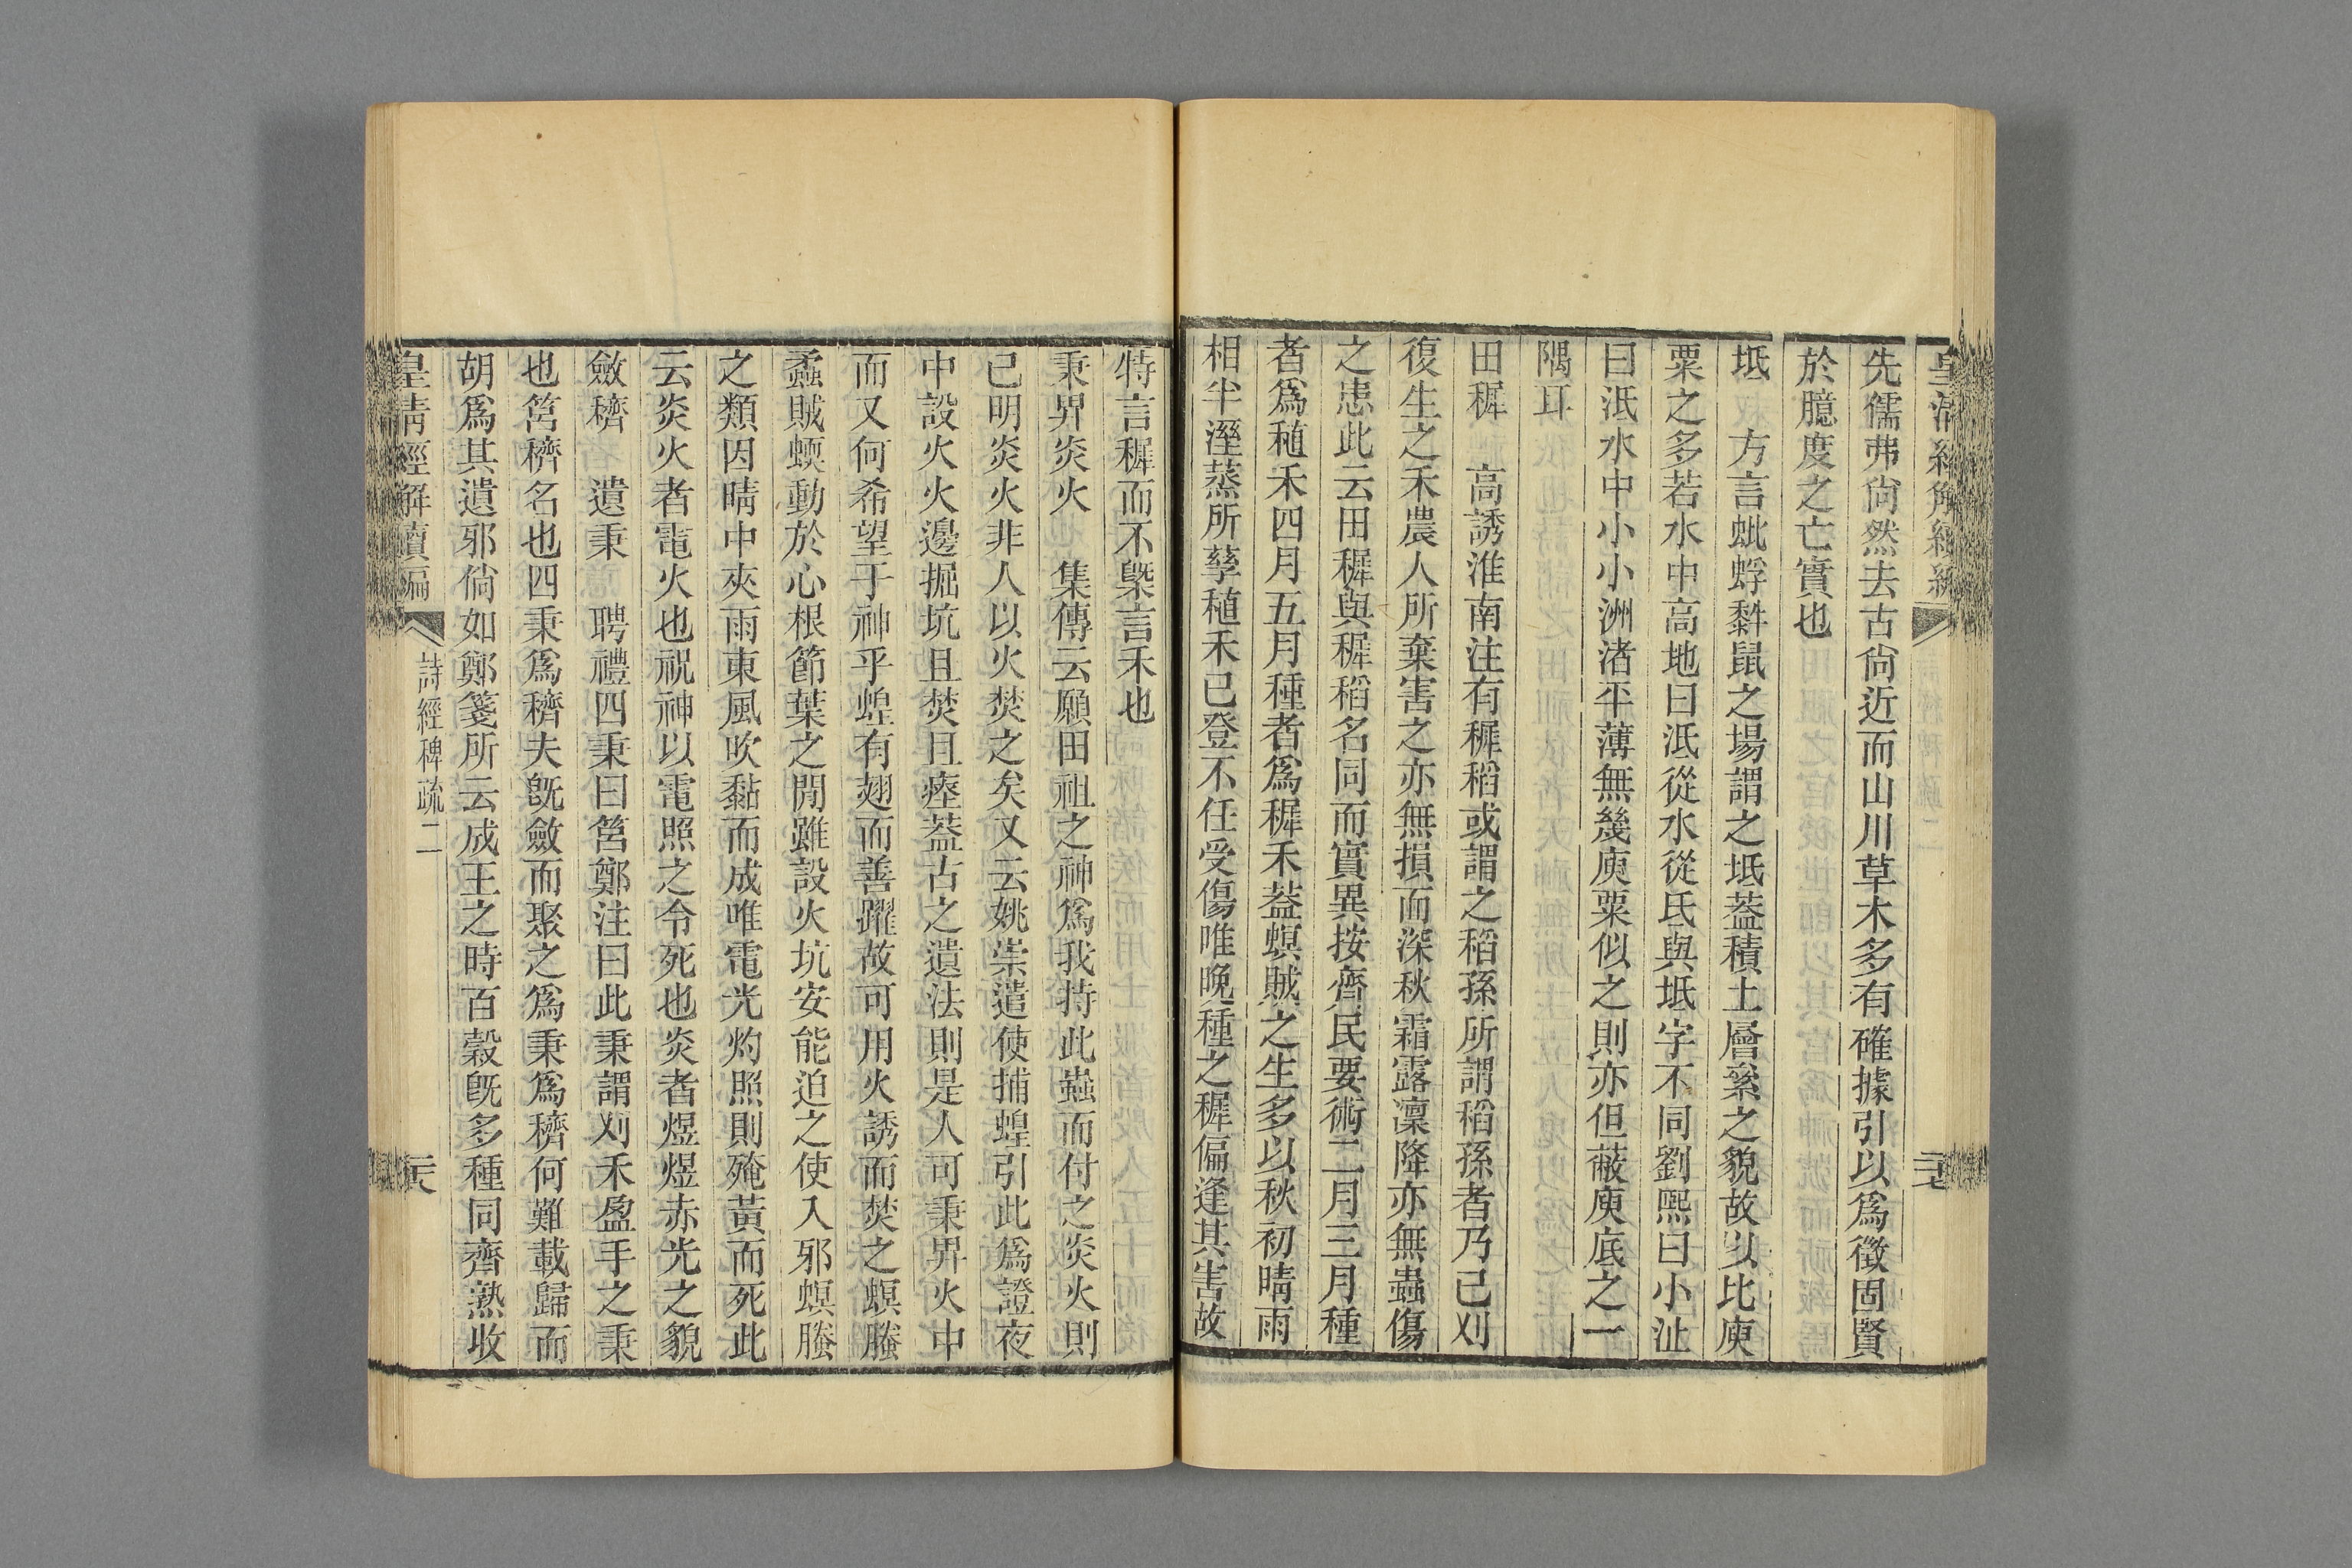 皇清經解續編
先儒弗尙然去古尙近而山川草木多有確據引以爲徵固賢
於臆度之亡實也
坻　方言蚍蜉𪕣鼠之場謂之坻蓋積土層絫之貌故以比庾
粟之多若水中高地曰泜從水從氐與坻字不同劉熙曰小沚
曰泜水中小小洲渚平薄無幾庾粟似之則亦但蔽庾底之一
隅耳
田穉　高誘淮南注有穉稻或謂之稻孫所謂稻孫者乃已刈
復生之禾農人所棄害之亦無損而深秋霜露凜降亦無蟲傷
之患此云田穉與穉稻名同而實異按齊民要術二月三月種
者爲稙禾四月五月種者爲穉禾蓋螟賊之生多以秋初晴雨
相半溼蒸所孳稙禾已登不任受傷唯晚種之穉偏逢其害故
特言穉而不槩言禾也
秉畀炎火　集傳云願田祖之神爲我持此蟲而付之炎火則
已明炎火非人以火焚之矣又云姚崇遣使捕蝗引此爲證夜
中設火火邊掘坑且焚且瘞蓋古之遺法則是人可秉畀火中
而又何希望于神乎蝗有翅而善躍故可用火誘而焚之螟螣
蟊賊蝡動於心根節葉之閒雖設火坑安能迫之使入邪螟螣
之類因晴中夾雨東風吹黏而成唯電光灼照則殗黃而死此
云炎火者電火也祝神以電照之令死也炎者煜煜赤光之貌
斂穧　遺秉　聘禮四秉曰筥鄭注曰此秉謂刈禾盈手之秉
也筥穧名也四秉爲穧夫旣斂而聚之爲秉爲穧何難載歸而
胡爲其遺邪倘如鄭箋所云成王之時百穀旣多種同齊熟收
皇清經解續編　詩經稗疏二